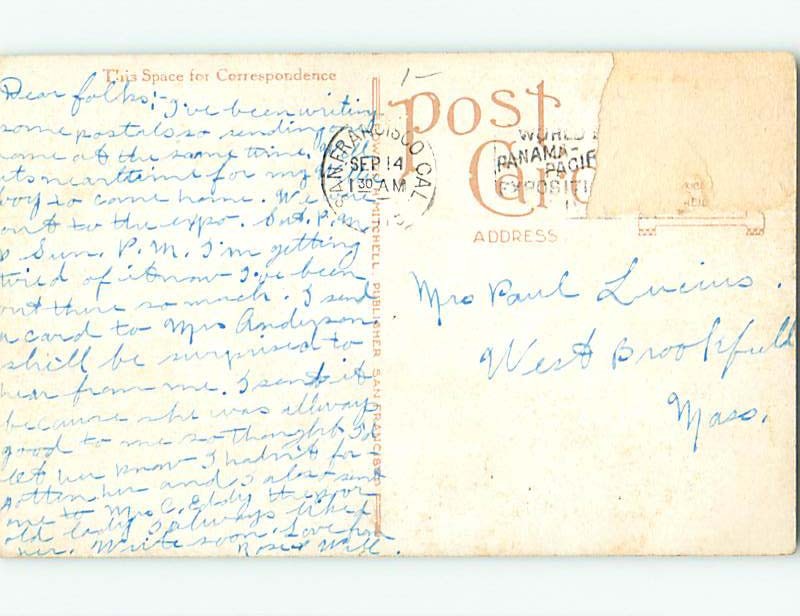 This Space for Correspondence
Dear folks:- I've been writing
some postals so sending
at the same time.
its near time for my
boy to come home. We
out to the expo. Sat. P.M.
Sun. P.M. I'm getting
tired of it now I've been
out there so much. I send
a card to Mrs Anderson
she'll be surprised to
hear from me. I sent it
because she was allways
good to me so thought I'd
let her know I hadn't for-
gotten her and I also sent
one to Mrs C. Eddy the poor
old lady I always liked
her. Write soon. Love from
Rose & Will.
MITCHELL PUBLISHER SAN FRANCISCO
1-
Post
Card
SAN FRANCISCO CAL
SEP 14
1 30 AM
WORLD
PANAMA-
PACIF
EXPOSITI
ADDRESS
Mrs Paul Lucius.
West Brookfield
Mass.